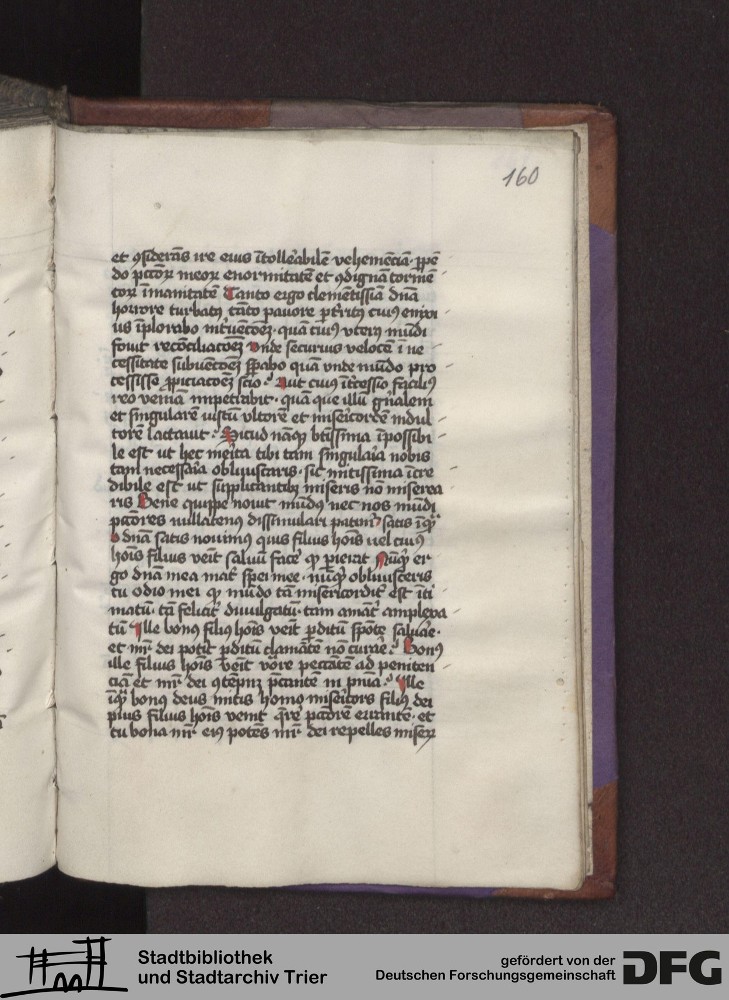 160
et ꝯsiderās ire eius ītoll'abilē vehemēciā· ꝓpē
do pcōꝝ meoꝝ enormitatē et ꝯdignā tormē
toꝝ īmanitatē Tanto ergo clemētissīa dnā
horrore turbatꝰ tāto pauore ꝑt'ritꝰ
ius īplorabo īt'uēcōeꝫ· quā cuiꝰ vterꝰ mūdi
fouit recōciliacōeꝫ Vnde securius velocē ī ne
cessitate subuēcōeꝫ spabo quā vnde mūdo pro
cessisse ꝓpiciacōeꝫ scio· Aut cuiꝰ īt'cessio facilꝰ
reo veniā impetrabit· quā que illū gn'alem
et singularē iustū vltorē et mis'icordē indul
torē lactauit· Sicud nāqꝫ btīssīma īpossibi
le est ut hec m'ita tibi tam singularia nobis
tam necessaria obliuiscaris· sic mitissima īcre
dibile est ut supplicantibꝫ miseris nō miserea
ris Bene quippe nouit mūdꝰ nec nos mūdi
pcōres nullatenꝰ dissimulari patimur satis īqꝫ
o dnā satis nouimꝰ quis filius hoīs uel cuiꝰ
hoīs filius veīt saluū face' qꝫ ꝑierat Nūqꝫ er
go dnā mea mat' spei mee· nūqꝫ obliuisceris
tu odio mei qꝫ mūdo tā misericordit' est īti
matū· tā felicit' diuulgatū· tam amāt' amplexa
tū Ille bonꝰ filiꝰ hoīs veīt ꝑditū spōte saluāe·
et mr̄ dei potīt ꝑditū clamātē nō curāe· Bonꝰ
ille filius hoīs veīt vōre peccātē ad peniten
ciā et mr̄ dei ꝯtēpnꝫ pcantē in pnīa· Ille
īqꝫ bonꝰ deus mitis homo mis'icors filiꝰ dei
pius filius hoīs venit q're pcōrē errāntē· et
tu bona mr̄ eiꝰ potēs mr̄ dei repelles miseꝝ
Stadtbibliothek
und Stadtarchiv Trier
gefördert von der
Deutschen Forschungsgemeinschaft
DFG